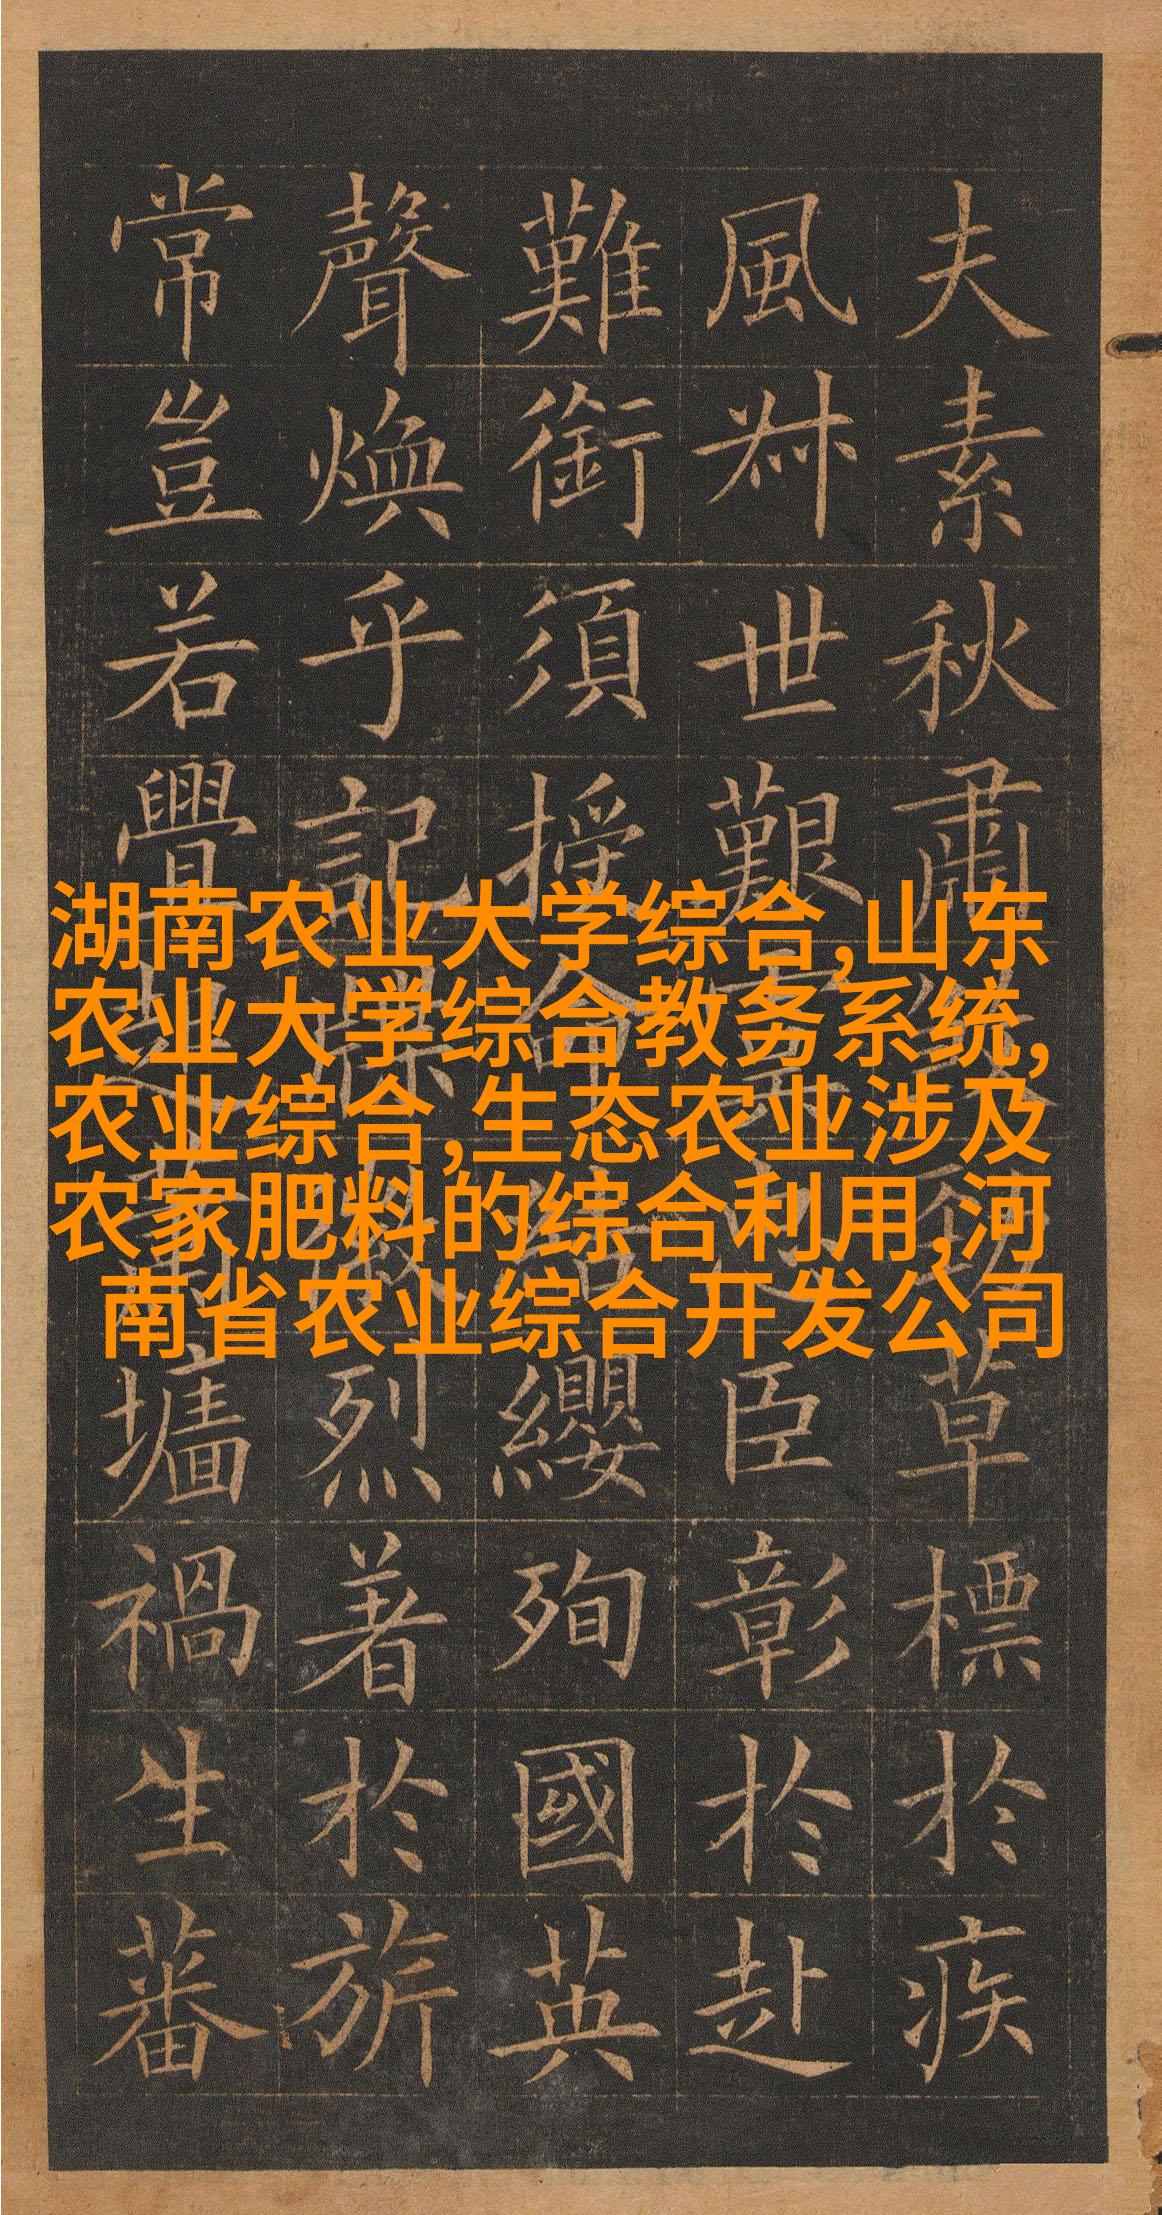 夫素秋肅煞勁草標於疾
風叔世艱虞忠臣彰於赴
難銜須授命結纓殉國英
聲煥乎記牒徽烈著於旂
常豈若釁起蕭墻禍生蕃
湖南农业大学综合,山东
农业大学综合教务系统,
农业综合,生态农业涉及
农家肥料的综合利用,河
南省农业综合开发公司